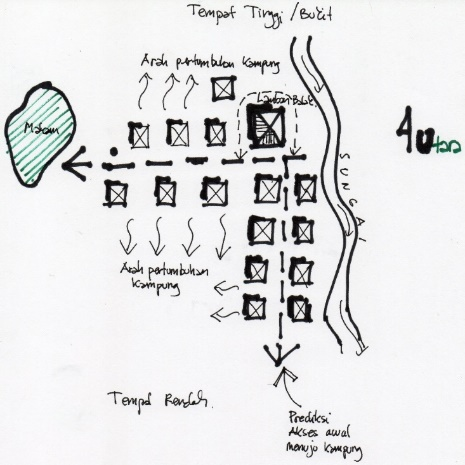 Tempat Tinggi / Bukit
Arah pertumbuhan kampung
Lamban Balak
Makam
SUNGAI
Utara
Arah pertumbuhan
kampung
Tempat Rendah.
Prediksi
Akses awal
menuju kampung